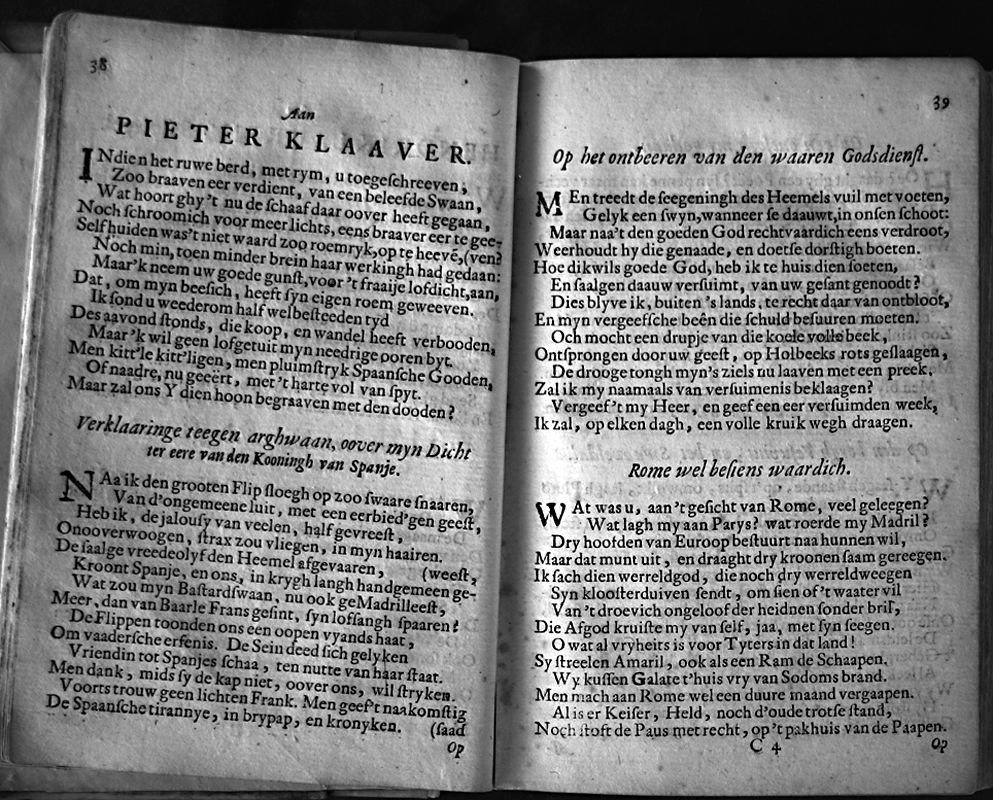 38
Aan
PIETER KLAAVER.
INdien het ruwe berd, met rym, u toegeſchreeven,
Zoo braaven eer verdient, van een beleefde Swaan,
Wat hoort ghy't nu de ſchaaf daar oover heeft gegaan,
Noch ſchroomich voor meer lichts, eens braaver eer te gee-
Self huiden was't niet waard zoo roemryk, op te heevē, (ven?
Noch min, toen minder brein haar werkingh had gedaan:
Maar'k neem uw goede gunſt, voor 't fraaije lofdicht, aan,
Dat, om myn beeſich, heeft ſyn eigen roem geweeven.
Ik ſond u weederom half welbeſteeden tyd
Des aavond ſtonds, die koop, en wandel heeft verbooden,
Maar 'k wil geen lofgetuit myn needrige poren byt.
Men kitt'le kitt'ligen, men pluimſtryk Spaanſche Gooden,
Of naadre, nu geeërt, met 't harte vol van ſpyt.
Maar zal ons Y dien hoon begraaven met den dooden?
Verklaaringe teegen arghwaan, oover myn Dicht
ter eere van den Kooningh van Spanje.
NAa ik den grooten Flip ſloegh op zoo ſwaare ſnaaren,
Van d'ongemeene luit, met een eerbied'gen geeſt,
Heb ik, de jalouſy van veelen, half gevreeſt,
Onooverwoogen, ſtrax zou vliegen, in myn haairen.
De ſaalge vreedeolyf den Heemel afgevaaren, (weeſt,
Kroont Spanje, en ons, in krygh langh handgemeen ge-
Wat zou myn Baſtardſwaan, nu ook geMadrilleeſt,
Meer, dan van Baarle Frans geſint, ſyn lofſangh ſpaaren?
De Flippen toonden ons een oopen vyands haat,
Om vaaderſche erfenis. De Sein deed ſich gelyken
Vriendin tot Spanjes ſchaa, ten nutte van haar ſtaat.
Men dank, mids ſy de kap niet, oover ons, wil ſtryken.
Voorts trouw geen lichten Frank. Men geef't naakomſtig
De Spaanſche tirannye, in brypap, en kronyken. (ſaad
Op
39
Op het ontbeeren van den waaren Godsdienſt.
MEn treedt de ſeegeningh des Heemels vuil met voeten,
Gelyk een ſwyn, wanneer ſe daauwt, in onſen ſchoot:
Maar naa't den goeden God rechtvaardich eens verdroot,
Weerhoudt hy die genaade, en doetſe dorſtigh boeten.
Hoe dikwils goede God, heb ik te huis dien ſoeten,
En ſaalgen daauw verſuimt, van uw geſant genoodt?
Dies blyve ik, buiten 's lands, te recht daar van ontbloot,
En myn vergeefſche beên die ſchuld beſuuren moeten.
Och mocht een drupje van die koele volle beek,
Ontſprongen door uw geeſt, op Holbeeks rots geſlaagen,
De drooge tongh myn's ziels nu laaven met een preek.
Zal ik my naamaals van verſuimenis beklaagen?
Vergeef't my Heer, en geef een eer verſuimden week,
Ik zal, op elken dagh, een volle kruik wegh draagen.
Rome wel beſiens waardich.
WAt was u, aan 't geſicht van Rome, veel geleegen?
Wat lagh my aan Parys? wat roerde my Madril?
Dry hoofden van Euroop beſtuurt naa hunnen wil,
Maar dat munt uit, en draaght dry kroonen ſaam gereegen.
Ik ſach dien werreldgod, die noch dry werreldweegen
Syn kloofterduiven ſendt, om ſien of't waater vil
Van 't droevich ongeloof der heidnen ſonder bril,
Die Afgod kruiſte my van ſelf, jaa, met ſyn ſeegen.
O wat al vryheits is voor Tyters in dat land!
Sy ſtreelen Amaril, ook als een Ram de Schaapen.
Wy kuſſen Galate t'huis vry van Sodoms brand.
Men mach aan Rome wel een duure maand vergaapen.
Al is er Keiſer, Held, noch d'oude trotſe ſtand,
Noch ſtoft de Paus met recht, op 't pakhuis van de Paapen.
C 4
Op